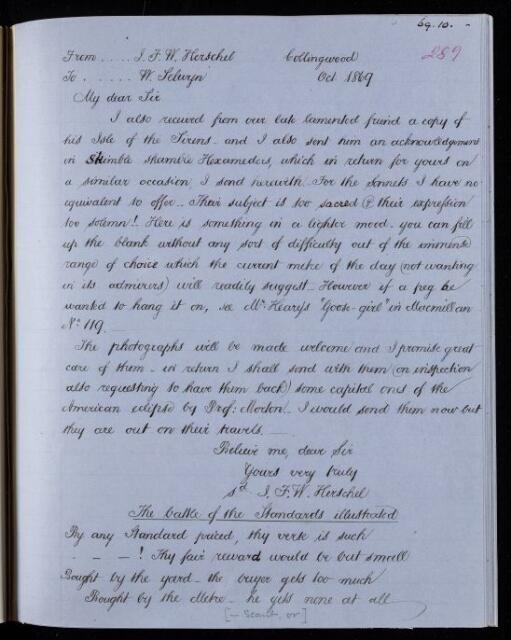 69.10. -
289
From ..... J. F. W. Herschel Collingwood
To ...... W. Selwyn Oct 1869
My dear Sir
I also received from our late lamented friend a copy of
his Isle of the Sirens - and I also sent him an acknowledgement
in Skimble skamble Hexameters, which in return for yours on
a similar occasion, I send herewith. For the Sonnets I have no
equivalent to offer - Their subject is too sacred & their expression
too solemn! Here is something in a lighter mood - you can fill
up the blank without any sort of difficulty out of the immense
range of choice which the current metre of the day (not wanting
in its admirers) will readily suggest - However if a peg be
wanted to hang it on, see Mr. Heary's "Goose-girl" in Macmillan
No. 119.
The photographs will be made welcome and I promise great
care of them - in return I shall send with them (on inspection
also requesting to have them back) some capital ones of the
American eclipse by Prof: Morton - I would send them now but
they are out on their travels. -
Believe me, dear Sir
Yours very truly
sd J. F. W. Herschel
The battle of the Standards illustrated
By any Standard priced, thy verse is such
- - - ! Thy fair reward would be but small
Bought by the yard - the buyer gets too much
Bought by the Metre - he gets none at all
[- Scout, or]